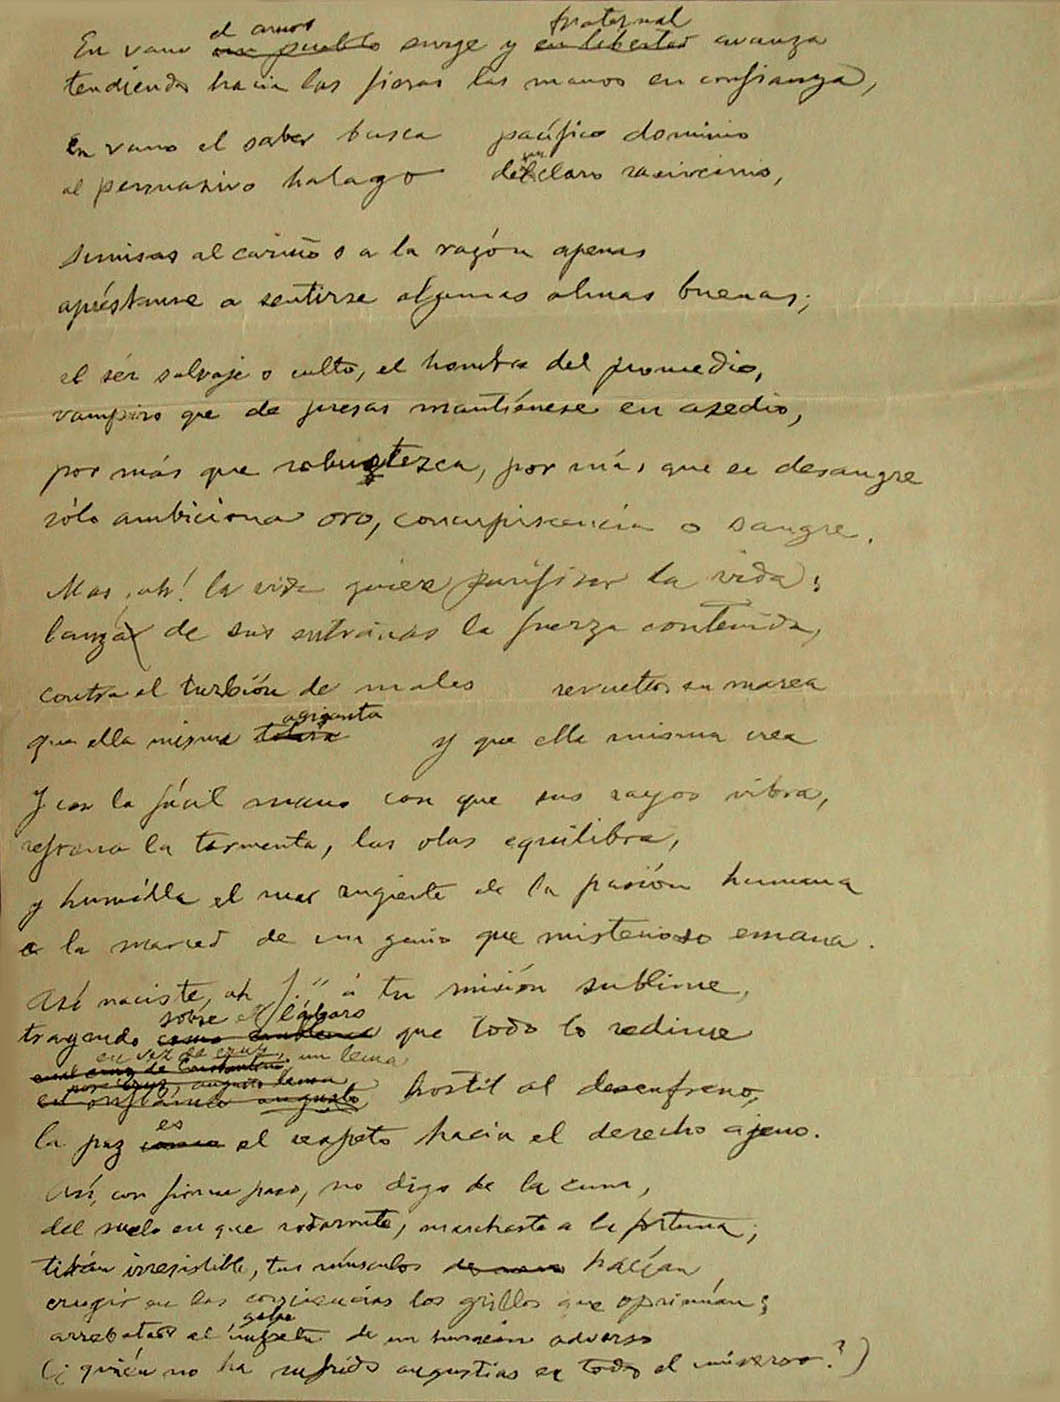 el amor fraternal
En vano un pueblo surge y en libertad avanza
tendiendo hacia las fieras las manos en confianza,
En vano el saber busca pacífico dominio
un
al persuasivo halago del claro raciocinio,
sumisas al cariño o a la razón apenas
apréstanse a sentirse algunas almas buenas;
el sér salvaje o culto, el hombre del promedio,
vampiro que de presas mantiénese en asedio,
por más que robustezca, por más que se desangre
sólo ambiciona oro, concupiscencia o sangre.
Mas, ah! la vida quiere purificar la vida;
lanza de sus entrañas la fuerza contenida,
contra el turbión de males revueltos en marea
agiganta
que ella misma y que ella misma crea
Y con la fácil mano con que sus rayos vibra,
refrena la tormenta, las olas equilibra,
y humilla el mar rugiente de la pasión humana
a la merced de un genio que misterioso emana.
Así naciste, oh J. a tu misión sublime,
sobre el lábaro
trayendo como emblema que todo lo redime
en vez de cruz, un lema
cruz de Constantino
por cruz, augusto lema
augusto hostil al desenfreno,
es
la paz como el respeto hacia el derecho ajeno.
Así, con firme paso, no digo de la cuna,
del suelo en que rodaste, marchaste a la fortuna;
titán irresistible, tus músculos hacían
crugir en las conciencias los grillos que oprimían;
golpe
arrebatado al de un huracán adverso
(¿quién no ha sufrido angustias en todo el universo?)